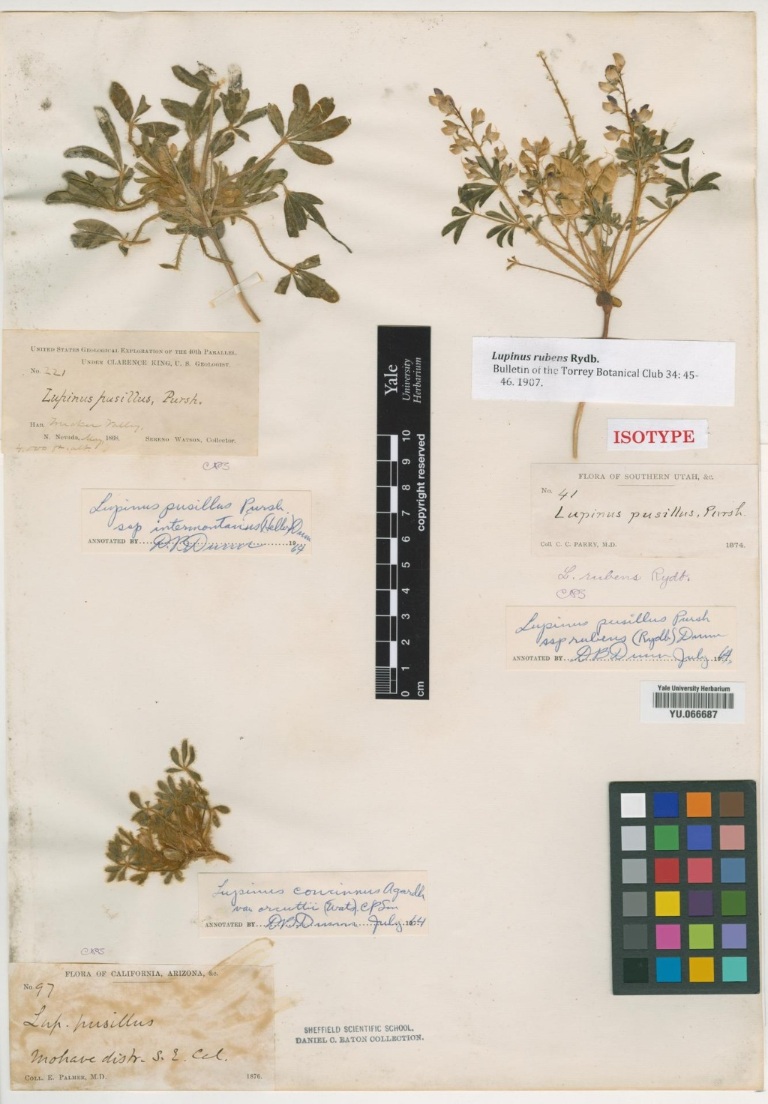 UNITED STATES GEOLOGICAL EXPLORATION OF THE 40th PARALLEL.
UNDER CLARENCE KING, U. S. GEOLOGIST.
No. 221
Lupinus pusillus, Pursh.
HAB. Valley,
N. Nevada, May 1868. SERENO WATSON, Collector.
CPS
Lupinus pusillus Pursh.
ssp intermontanus (Heller) Dunn
ANNOTATED BY D B Dunn 1964
Yale
University
Herbarium
copyright reserved
0 1 2 3 4 5 6 7 8 9 10
cm
Lupinus rubens Rydb.
Bulletin of the Torrey Botanical Club 34: 45-
46. 1907.
ISOTYPE
FLORA OF SOUTHERN UTAH, &c.
No. 41
Lupinus pusillus, Pursh.
Coll. C. C. PARRY, M.D. 1874.
L. rubens Rydb.
CPS
Lupinus pusillus Pursh
ssp rubens (Rydb) Dunn
ANNOTATED BY D B Dunn July 1964.
Yale University Herbarium
YU.066687
Lupinus concinnus Agardh
var orcuttii (Wats) CPSm
ANNOTATED BY D B Dunn July 1964
CPS
FLORA OF CALIFORNIA, ARIZONA, &c.
No. 97
Lup. pusillus
Mohave distr. S. E. Cal.
COLL. E. PALMER, M.D. 1876.
SHEFFIELD SCIENTIFIC SCHOOL,
DANIEL C. EATON COLLECTION.